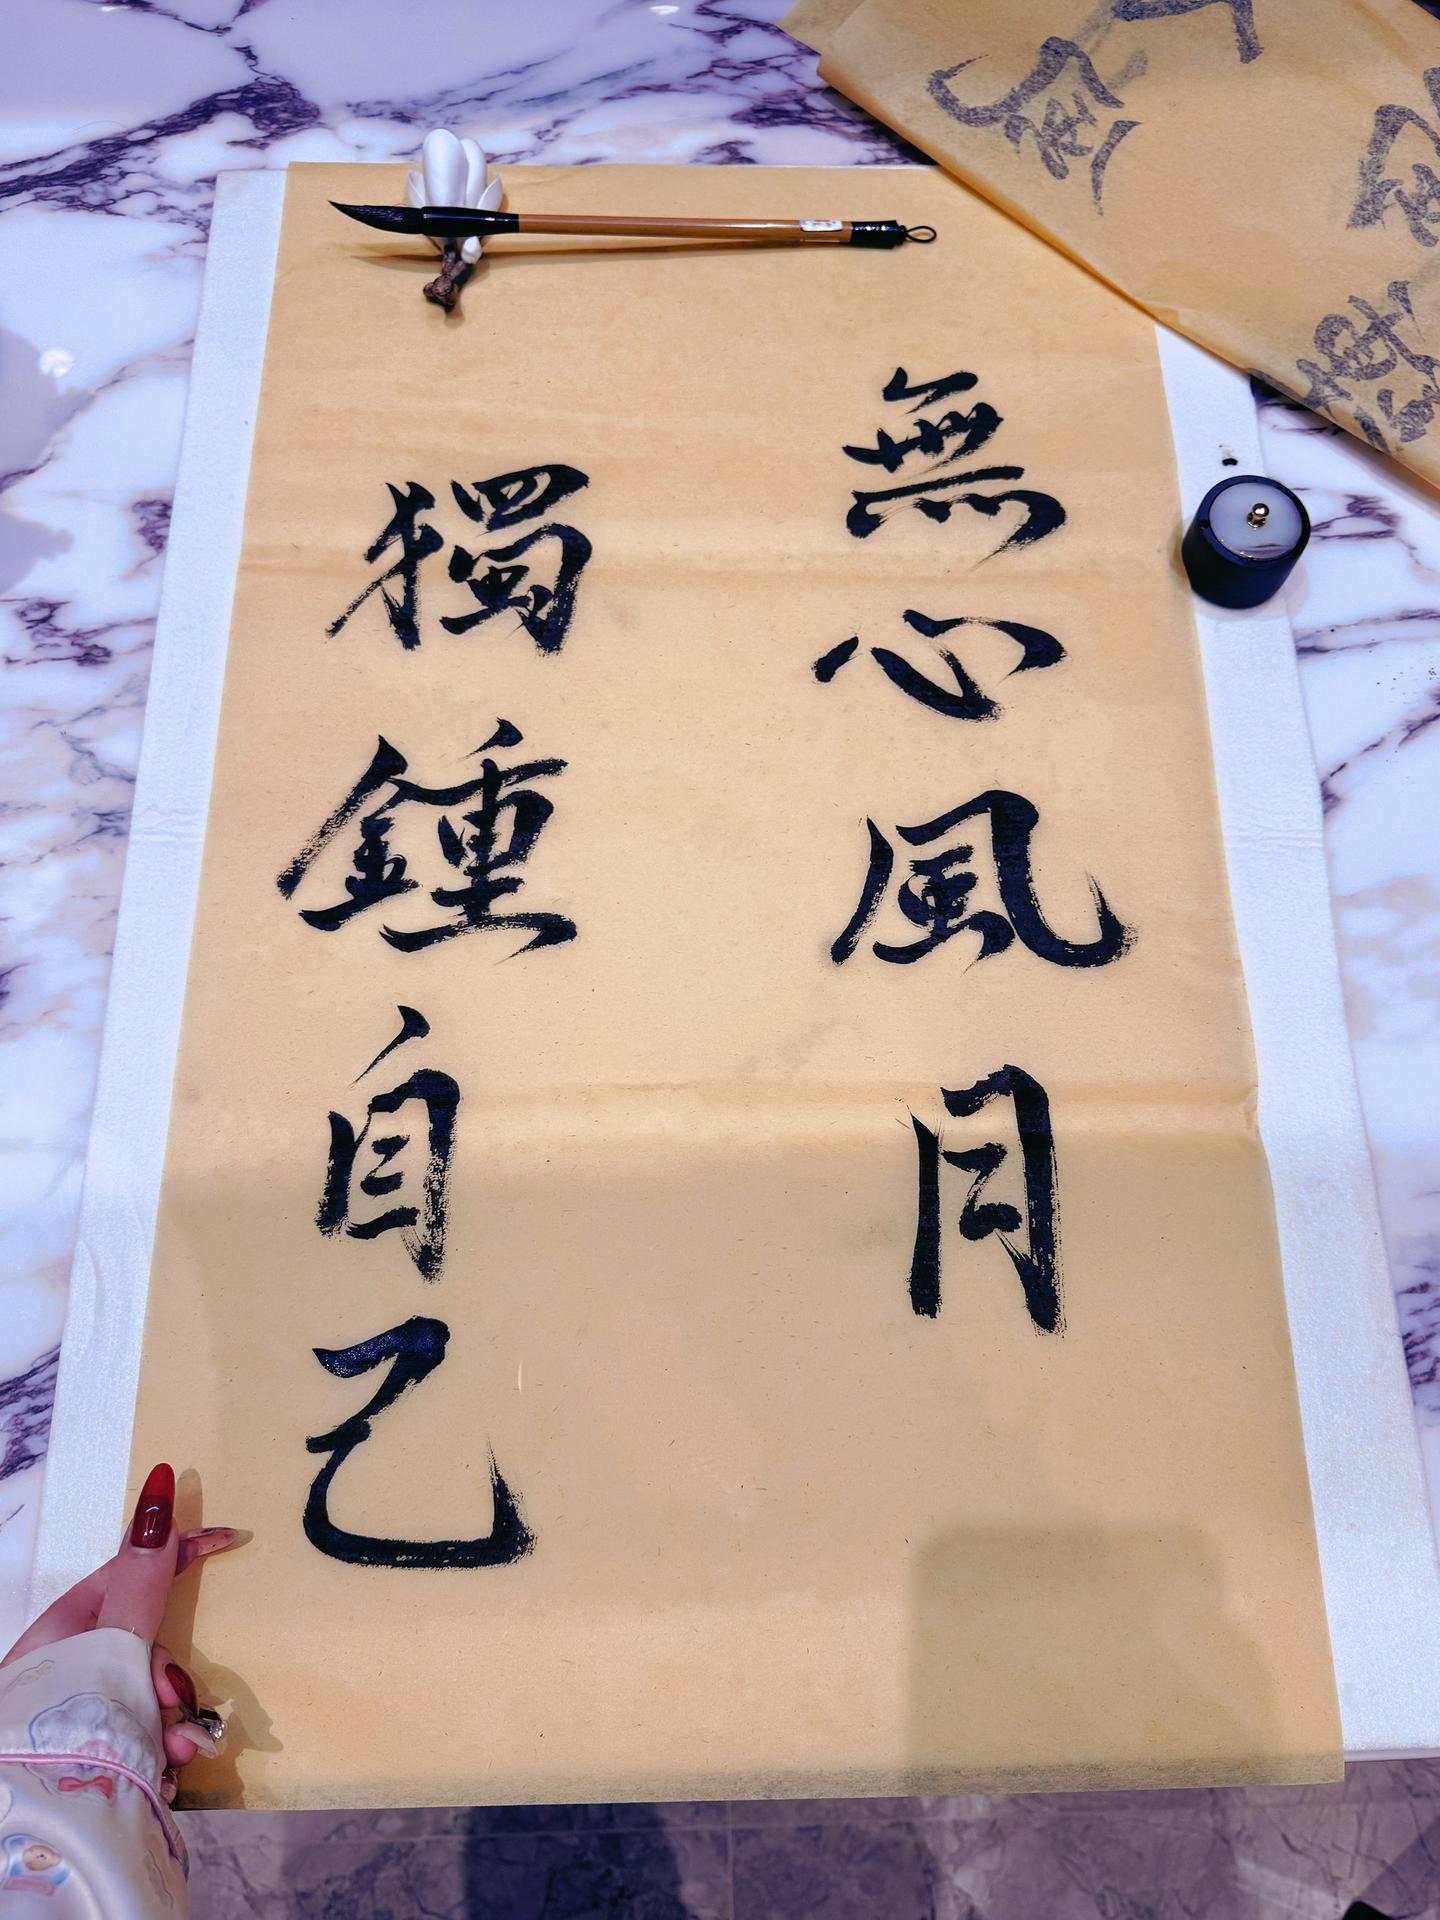 無心風月
獨鍾自己